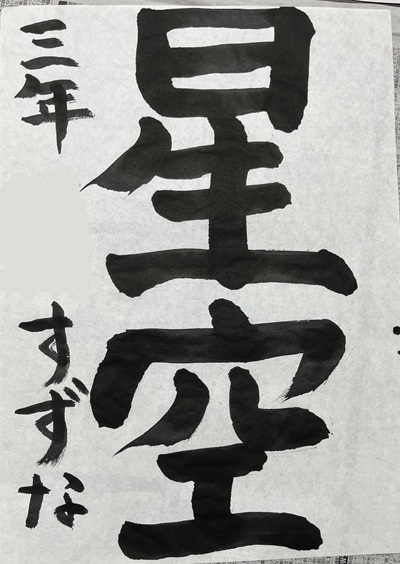 星空
三年 すずな